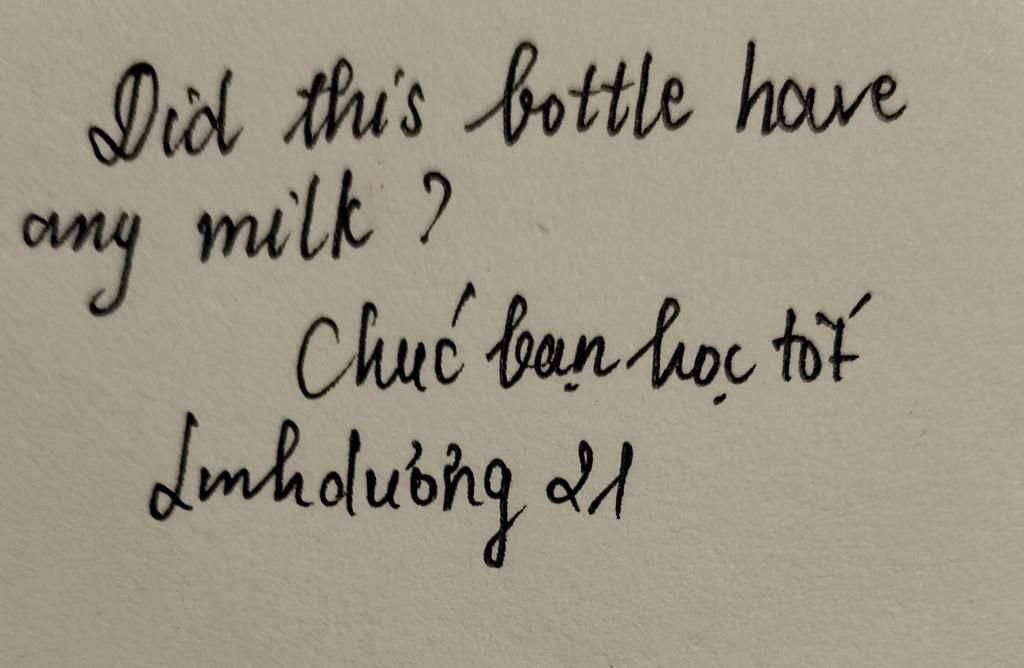 Did this bottle have
any milk ?
Chúc bạn học tốt
Linhdương 21